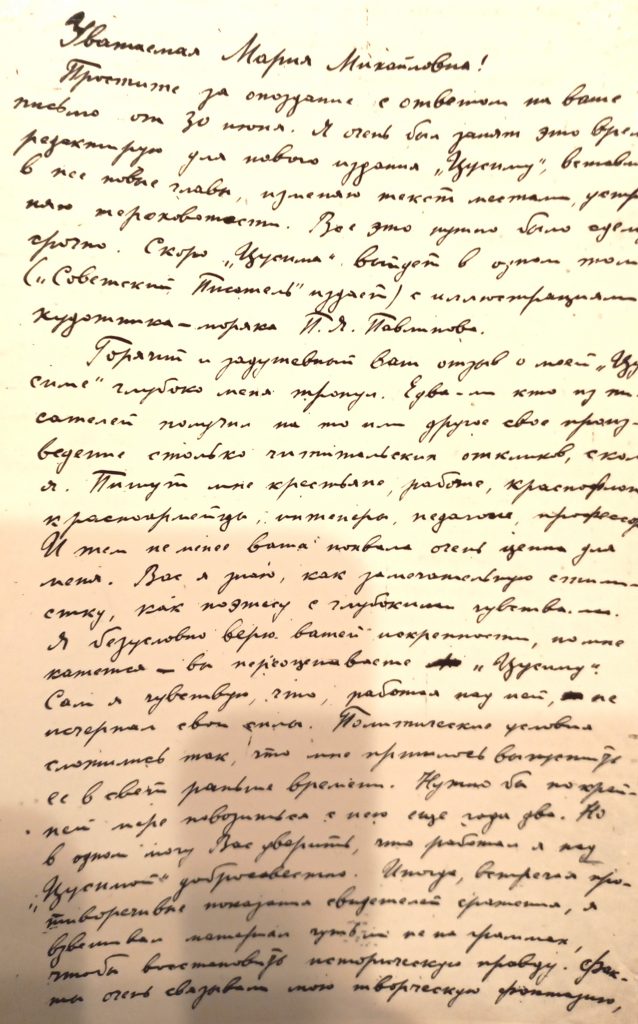 Уважаемая Мария Михайловна!
Простите за опоздание с ответом на ваше
письмо от 30 июня. Я очень был занят это врем
редактирую для нового издания „Цусиму“, вставл
в нее новые главы, изменяю текст местами, устр
няю шероховатости. Все это нужно было сдел
срочно. Скоро „Цусима“ выйдет в одном том
(„Советский Писатель“ издает) с иллюстрациями
художника-моряка П. Я. Павлинова.
Горячий и задушевный ваш отзыв о моей „Цу
симе“ глубоко меня тронул. Едва-ли кто из пи
сателей получил на то или другое свое произ-
ведение столько читательских откликов, скол
я. Пишут мне крестьяне, рабочие, краснофлот
красноармейцы, инженеры, педагоги, професс
И тем не менее ваша похвала очень ценна для
меня. Вас я знаю, как замечательную стили-
стку, как поэтесу с глубокими чувствами.
Я безусловно верю вашей искренности, но мне
кажется — вы переоцениваете „Цусиму“.
Сам я чувствую, что, работая над ней, не
исчерпал свои силы. Политические условия
сложились так, что мне пришлось выпустить
ее в свет раньше времени. Нужно бы по край-
ней мере повозиться с нею еще года два. Но
в одном могу Вас уверить, что работал я над
„Цусимой“ добросовестно. Иногда, встречая про-
тиворечивые показания свидетелей сражения, я
взвешивал материал чуть ли не на граммах,
чтобы восстановить историческую правду. Фак-
ты очень связывали мою творческую фантазию,